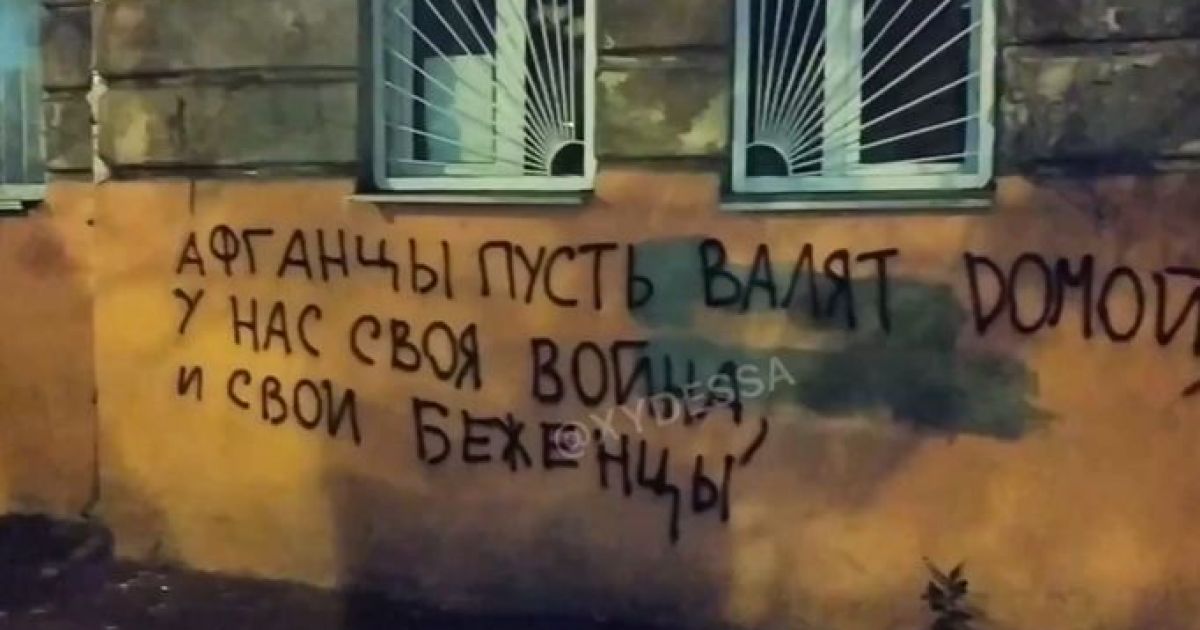 АФГАНЦЫ ПУСТЬ ВАЛЯТ ДОМОЙ,
У НАС СВОЯ ВОЙНА,
И СВОИ БЕЖЕНЦЫ
@XYDESSA